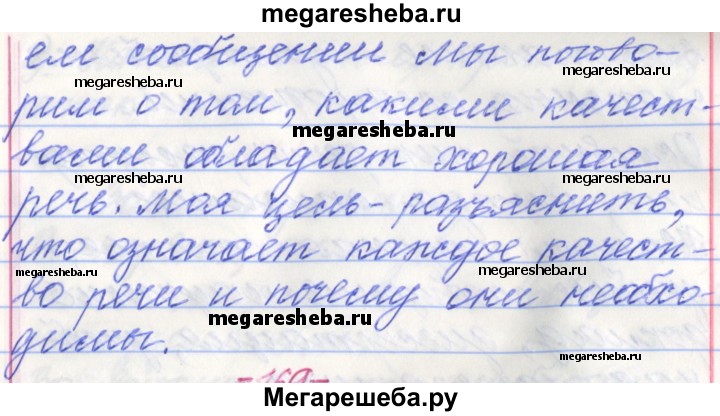 megaresheba.ru
ем сообщении мы погово-
megaresheba.ru
megaresheba.ru
рим о том, какими качест-
megaresheba.ru
вами обладает хорошая
megaresheba.ru
megaresheba.ru
речь. Моя цель - разъяснить,
что означает каждое качест-
megaresheba.ru
megaresheba.ru
во речи и почему они необхо-
megaresheba.ru
димы.
megaresheba.ru
-169-
Мегарешеба.ру